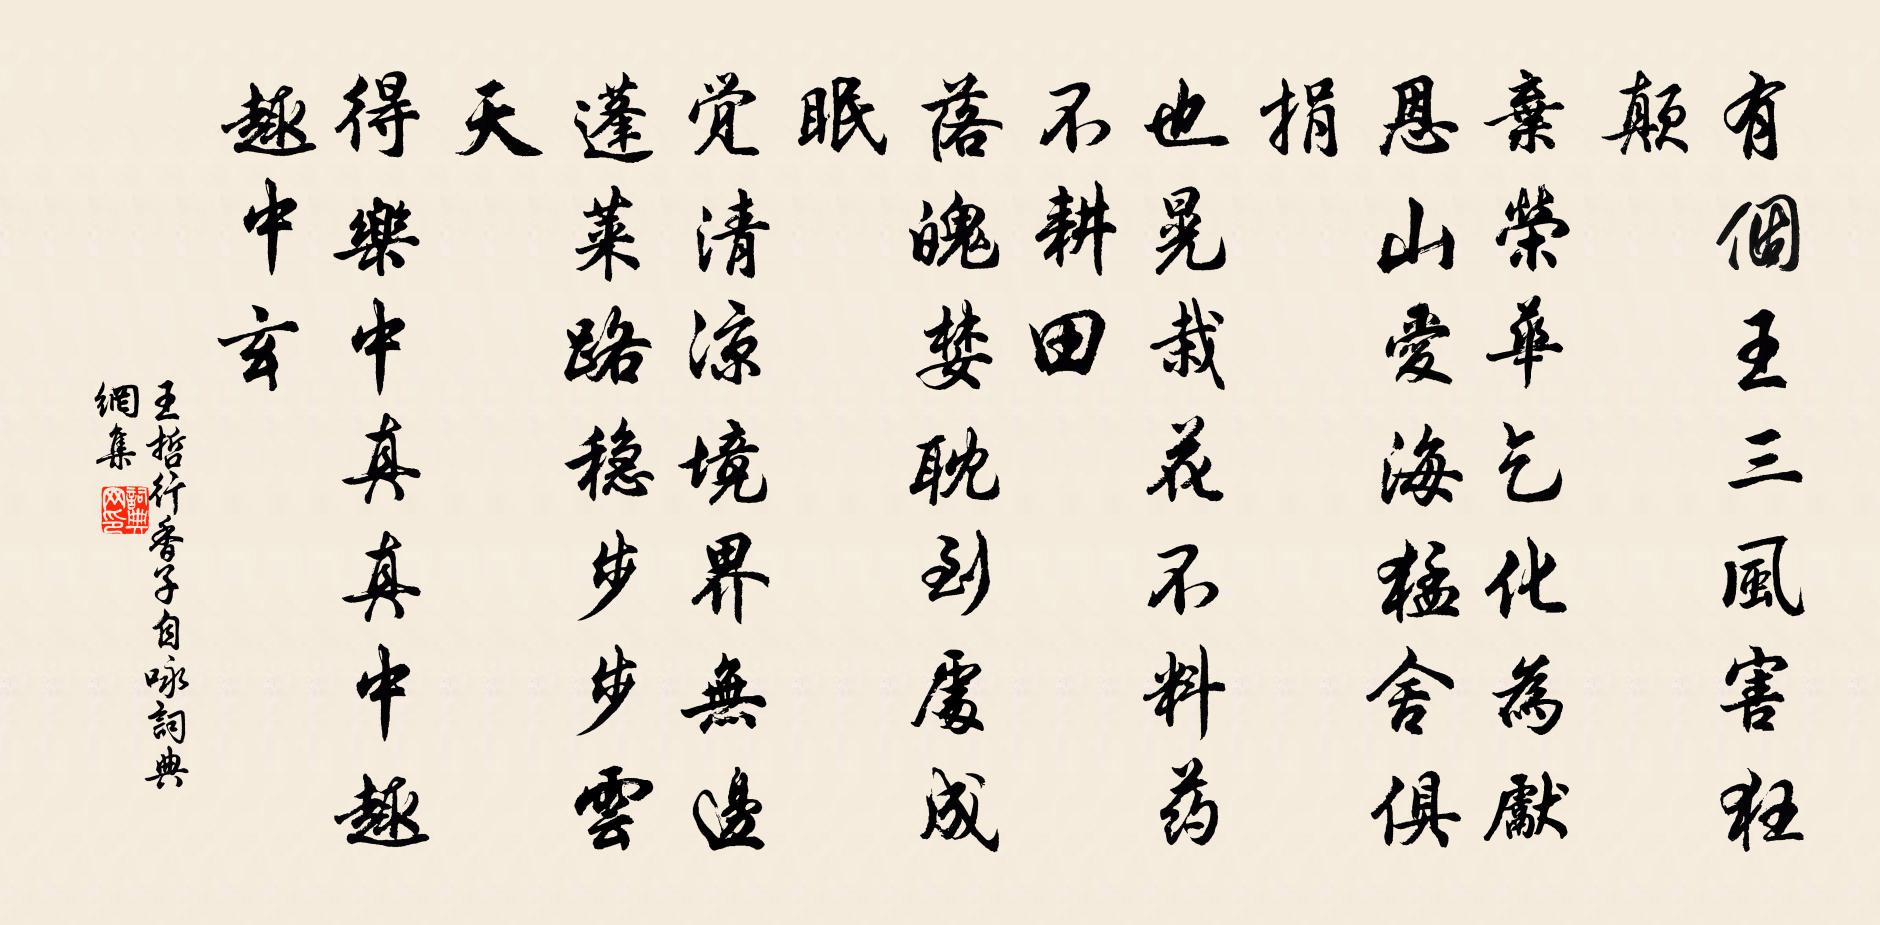 有個王三風害狂
顛
棄榮華乞化為獻
恩山愛海猛舍俱
捐
也晃栽花不料药
不耕田
落魄婪耽到處成
眠
觉清涼境界無邊
蓬莱路稳步步雲
天
得樂中真真中趣
趣中玄
王哲行香子自咏詞典
網集
詞典
网印